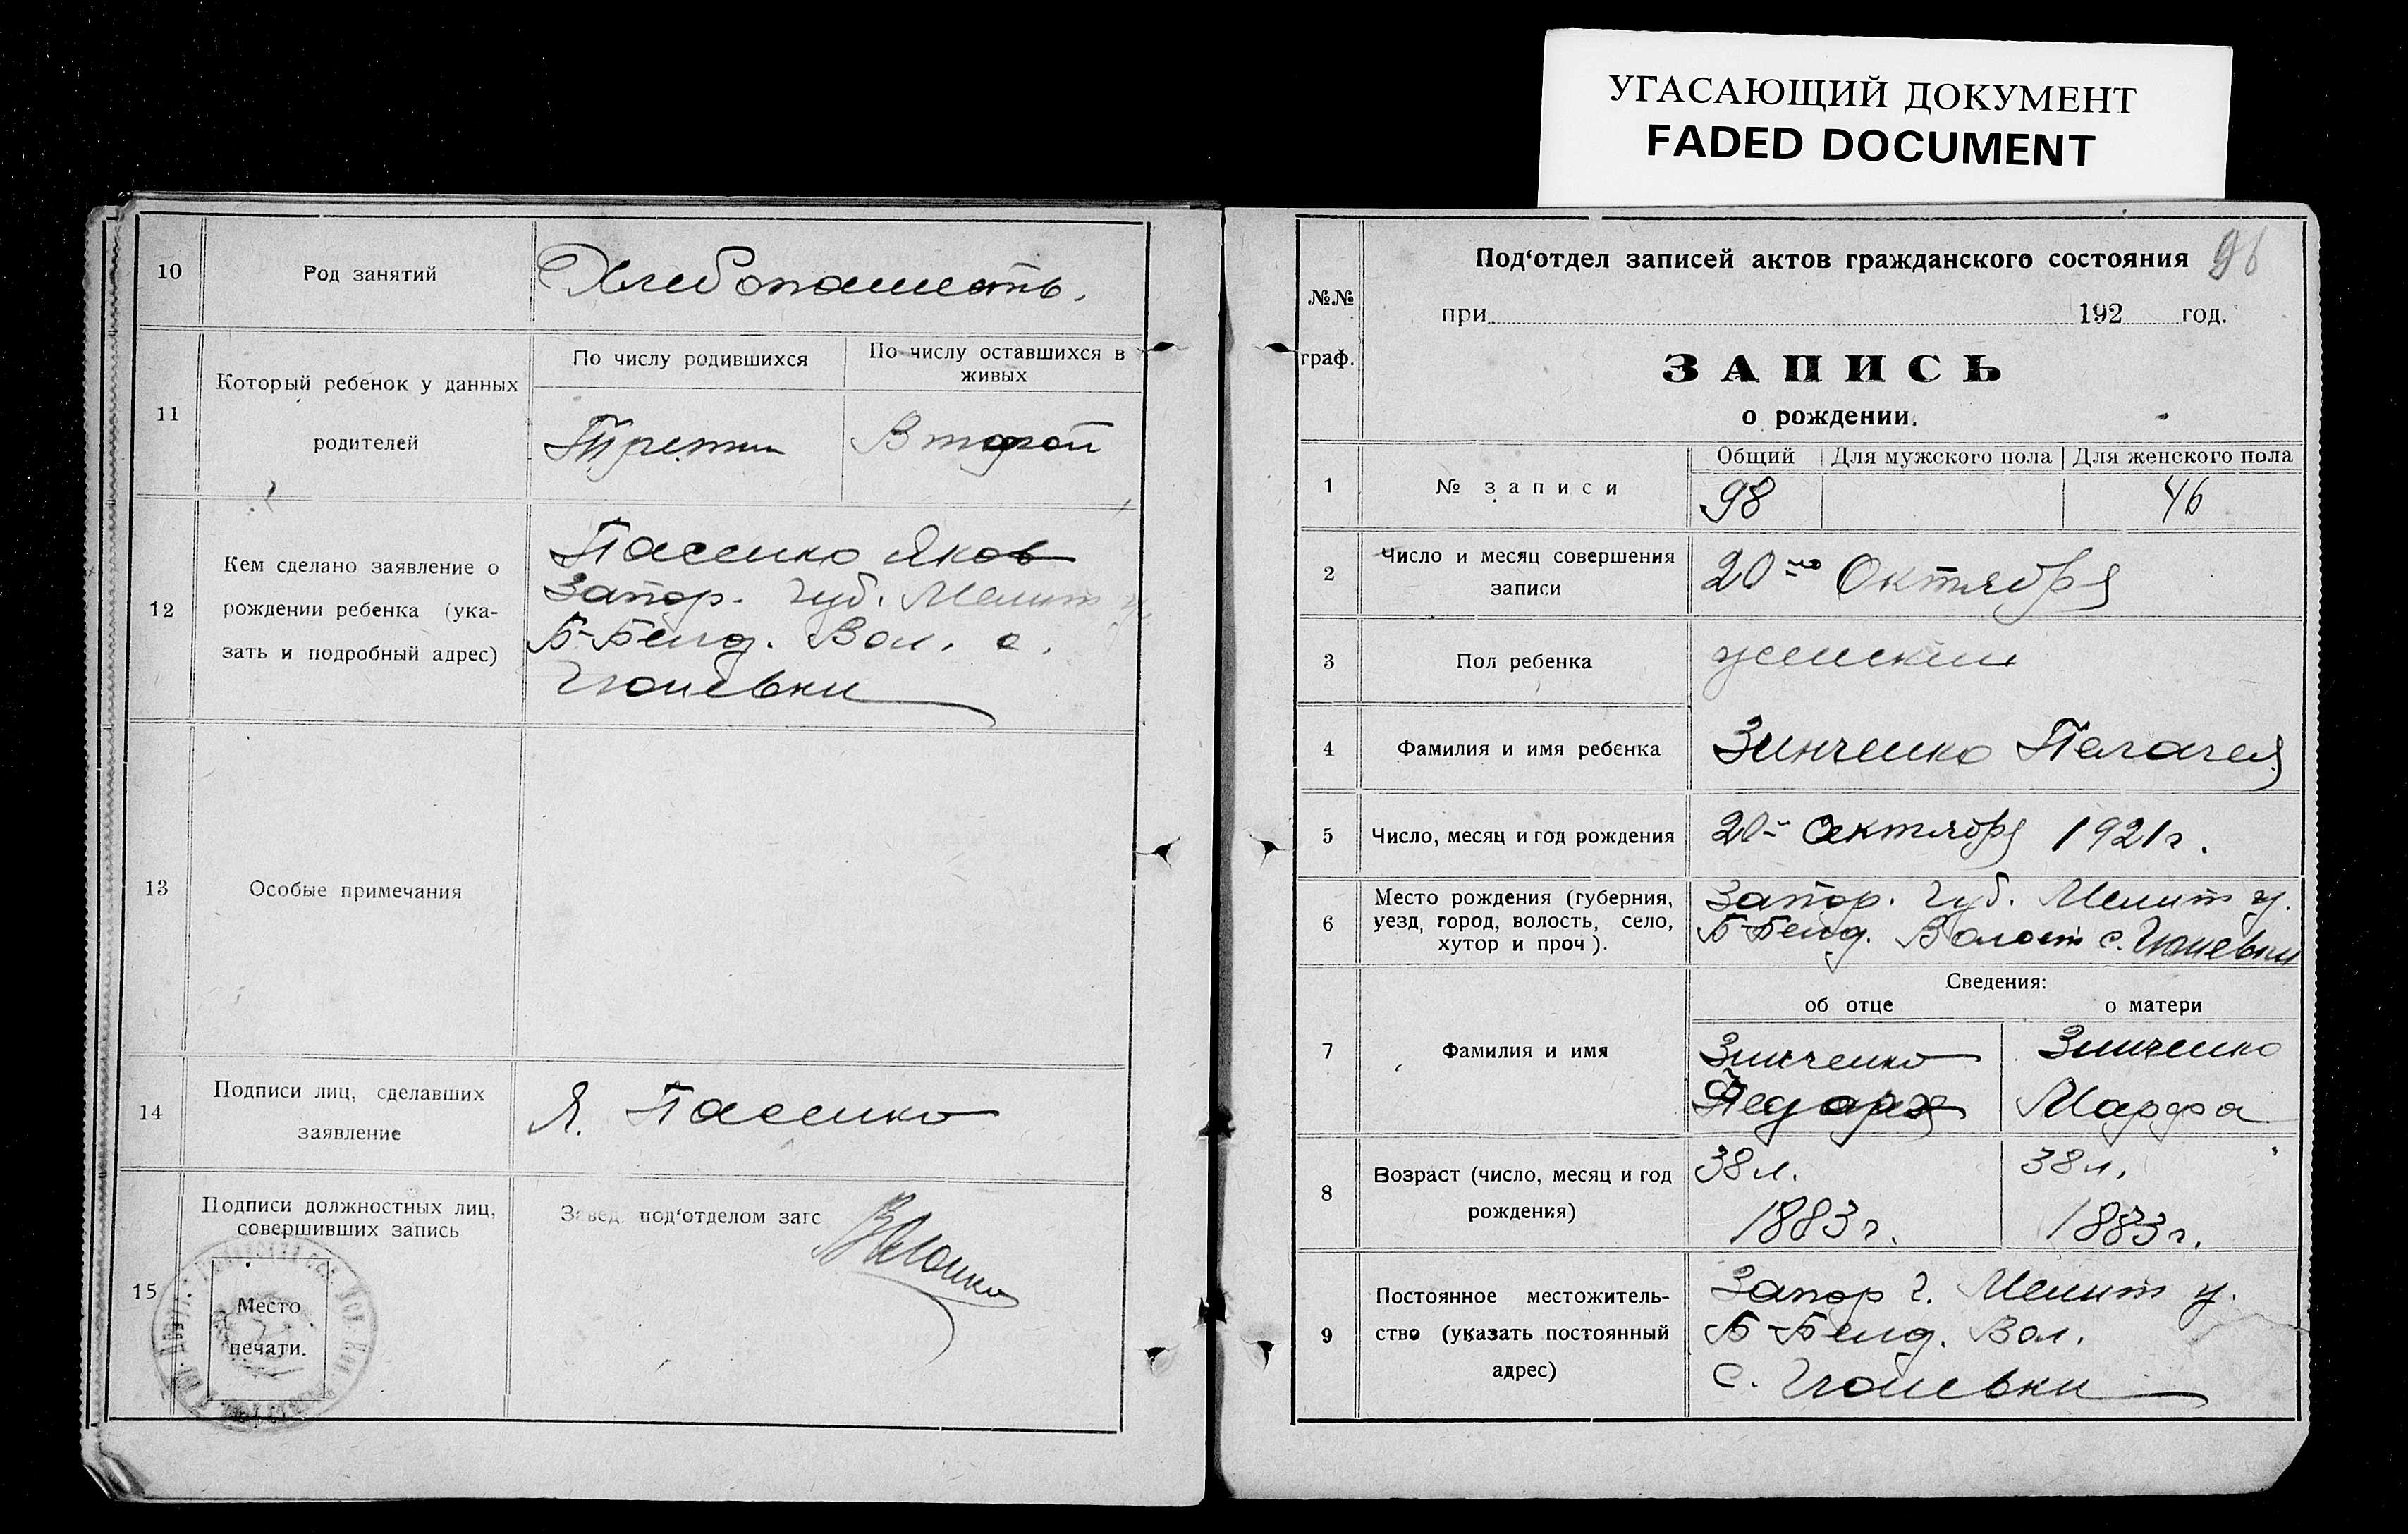 УГАСАЮЩИЙ ДОКУМЕНТ
FADED DOCUMENT
10
Род занятий
Хлебопашеств.
11
Который ребенок у данных
родителей
По числу родившихся
По числу оставшихся в
живых
Третий
Второй
12
Кем сделано заявление о
рождении ребенка (ука-
зать и подробный адрес)
Пасенко Яков
Запор. Губ. Мелит у.
Б-Белд. Вол. с.
Гюневки
13
Особые примечания
14
Подписи лиц, сделавших
заявление
Я. Пасенко
15
Подписи должностных лиц,
совершивших запись
Место
печати.
Завед. под‘отделом загс
№№
граф.
Под‘отдел записей актов гражданского состояния
96
при 192 год.
ЗАПИСЬ
о рождении.
1
№ записи
Общий
Для мужского пола
Для женского пола
98
46
2
Число и месяц совершения
записи
20го Октября
3
Пол ребенка
женский
4
Фамилия и имя ребенка
Зинченко Пелагея
5
Число, месяц и год рождения
20го Октября 1921г.
6
Место рождения (губерния,
уезд, город, волость, село,
хутор и проч).
Запор. Губ. Мелит у.
Б-Белд. Волост с. Гюневки
Сведения:
об отце
о матери
7
Фамилия и имя
Зинченко
Зинченко
Марфа
8
Возраст (число, месяц и год
рождения)
38 л.
1883г.
38 л.
1883г.
9
Постоянное местожитель-
ство (указать постоянный
адрес)
Запор г. Мелит у.
Б-Белд. Вол.
с. Гюневки